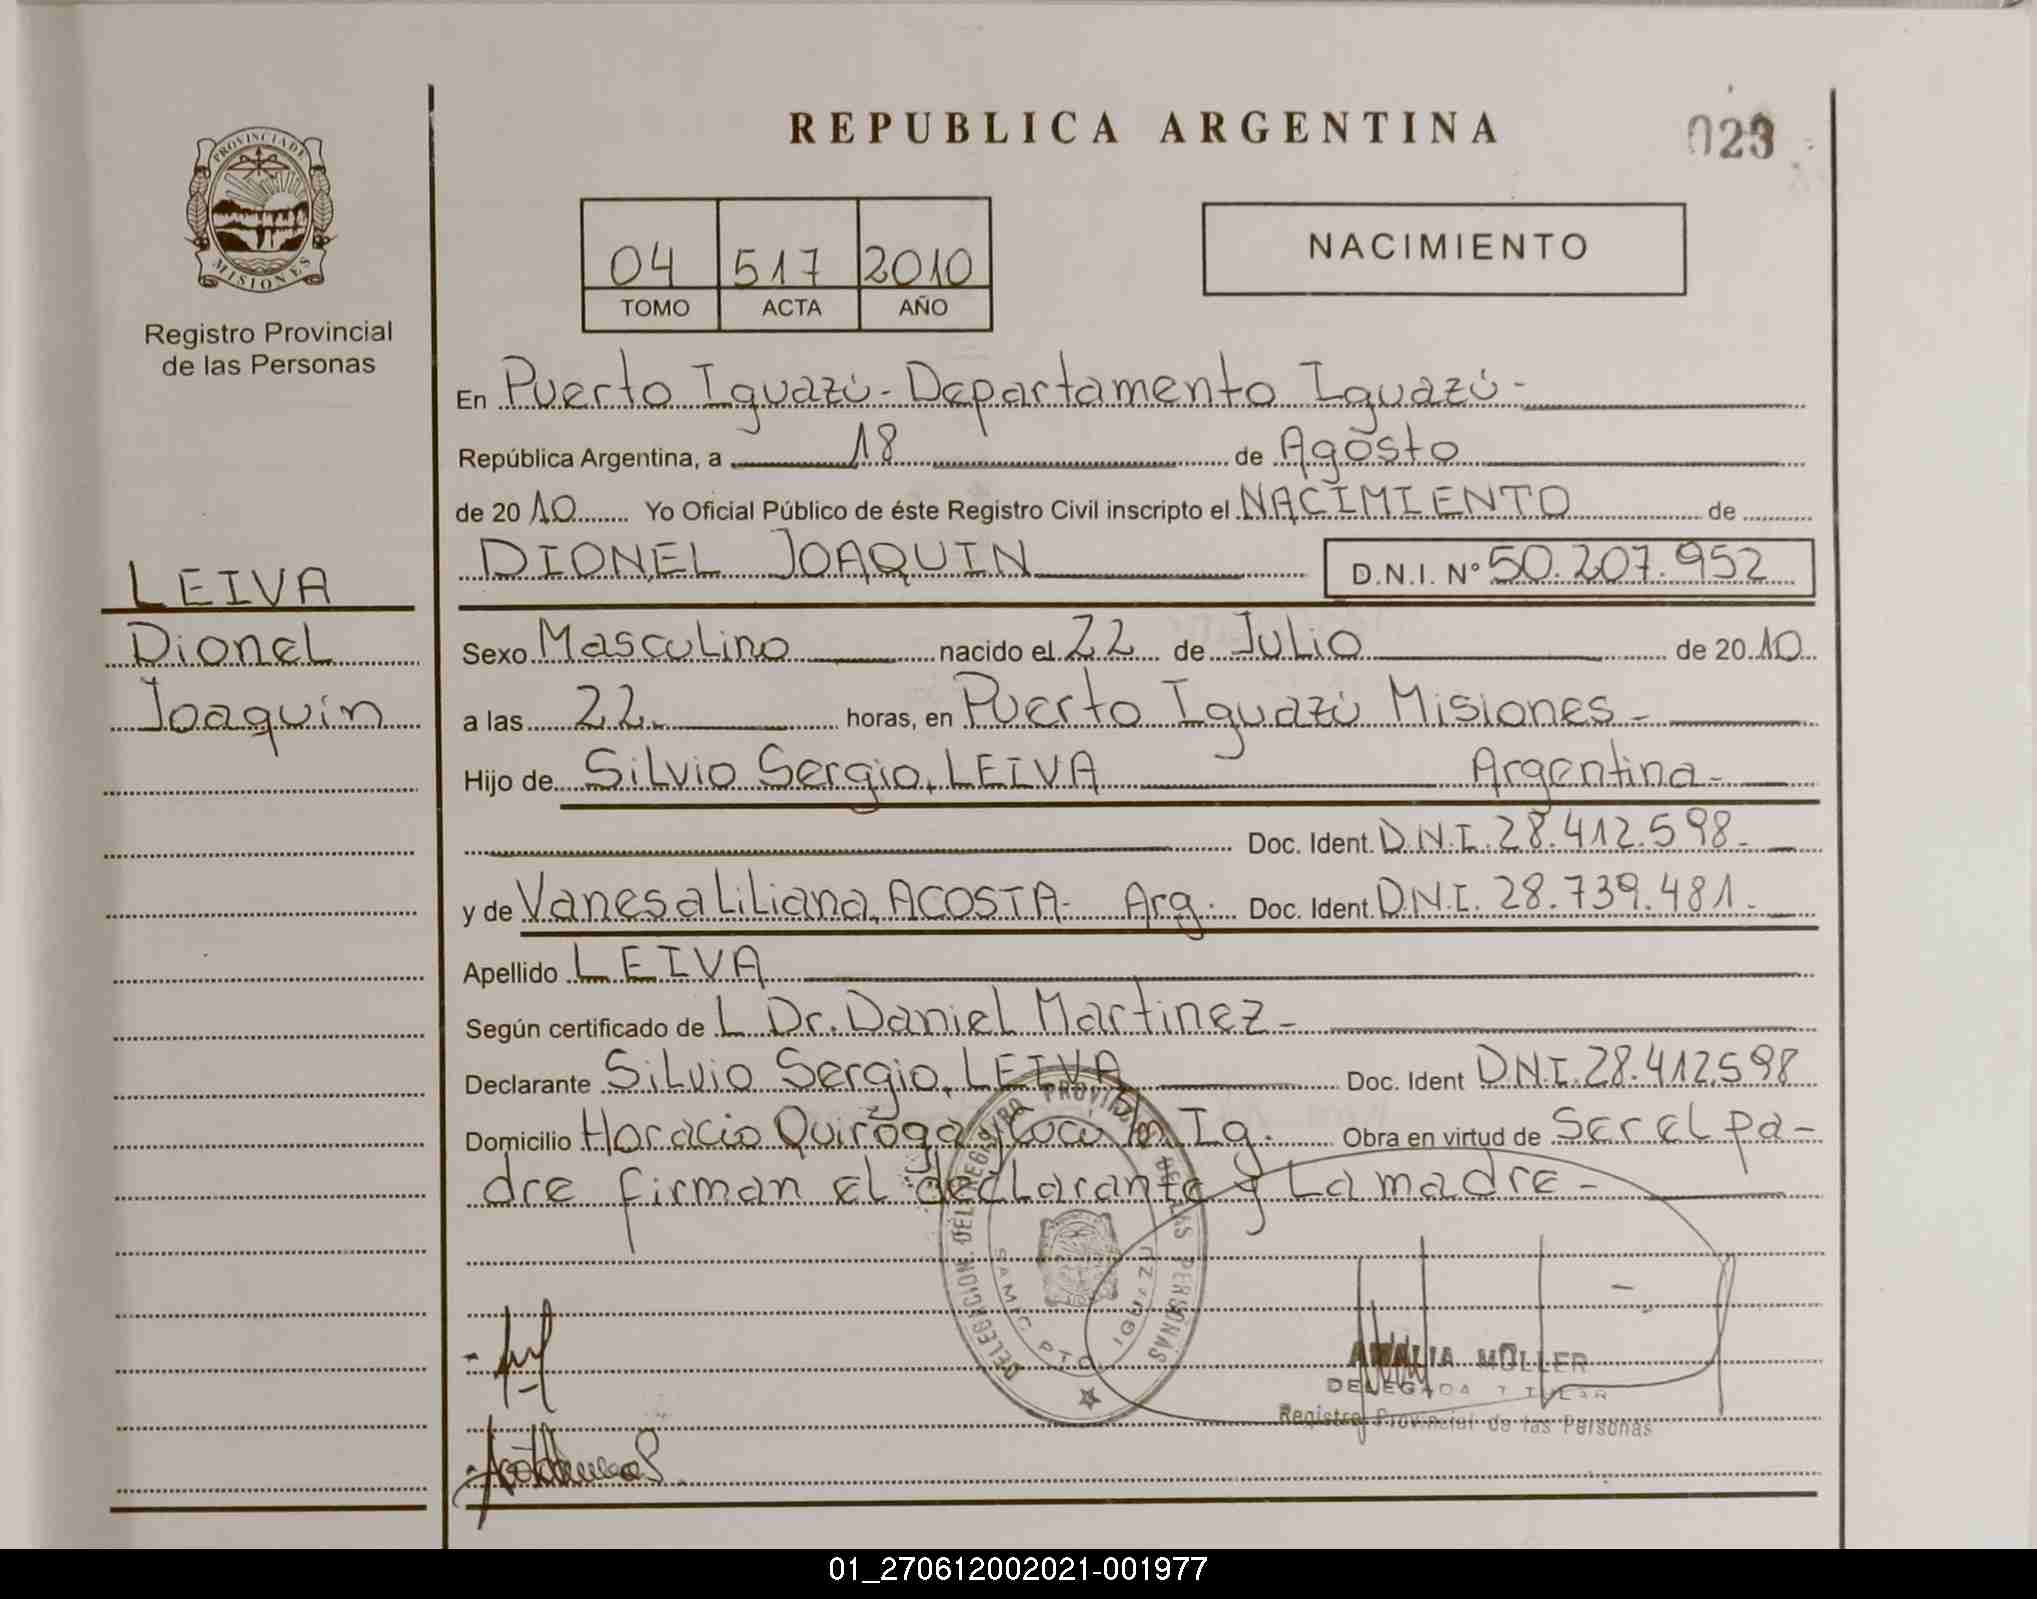 REPUBLICA ARGENTINA
023
PROVINCIA DE
MISIONES
Registro Provincial
de las Personas
04 517 2010
TOMO ACTA AÑO
NACIMIENTO
En Puerto Iguazú - Departamento Iguazú -
República Argentina, a 18 de Agosto
de 2010 Yo Oficial Público de éste Registro Civil inscripto el NACIMIENTO de
DIONEL JOAQUIN D.N.I. Nº 50.207.952
LEIVA
Dionel
Joaquín
Sexo Masculino nacido el 22 de Julio de 2010
a las 22 horas, en Puerto Iguazú Misiones -
Hijo de Silvio Sergio, LEIVA Argentina -
Doc. Ident. D.N.I. 28.412.598 -
y de Vanesa Liliana, ACOSTA - Arg. Doc. Ident. D.N.I. 28.739.481 -
Apellido LEIVA
Según certificado de L Dr. Daniel Martinez -
Declarante Silvio Sergio, LEIVA Doc. Ident D.N.I. 28.412.598
Domicilio Horacio Quiroga y Ig. Obra en virtud de Ser el pa-
dre firman el declarante y la madre -
DELEGACION DEL REGISTRO PROVINCIAL DE LAS PERSONAS
PTO IGUAZU
AMALIA MÖLLER
DELEGADA TITULAR
Registro Provincial de las Personas
01_270612002021-001977